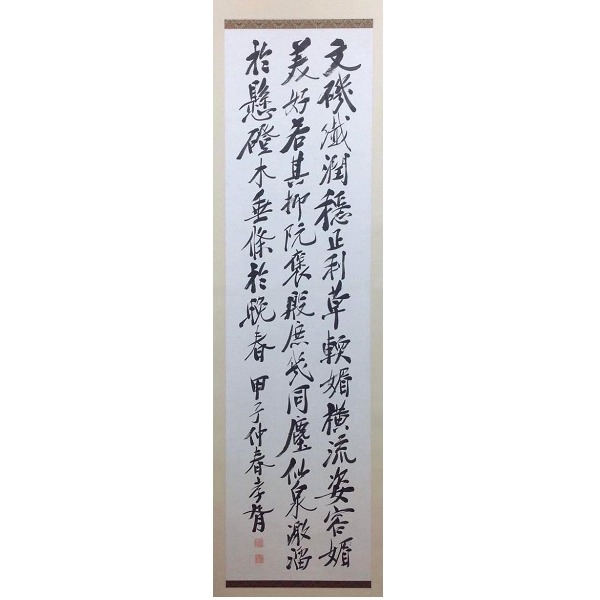 文磯纖潤穩正利草輭媚橫流姿容媚
美好若其抑阮褒殷庶幾同塵仙泉漱溜
於懸磴木垂條於晼春 甲子仲春孝胥